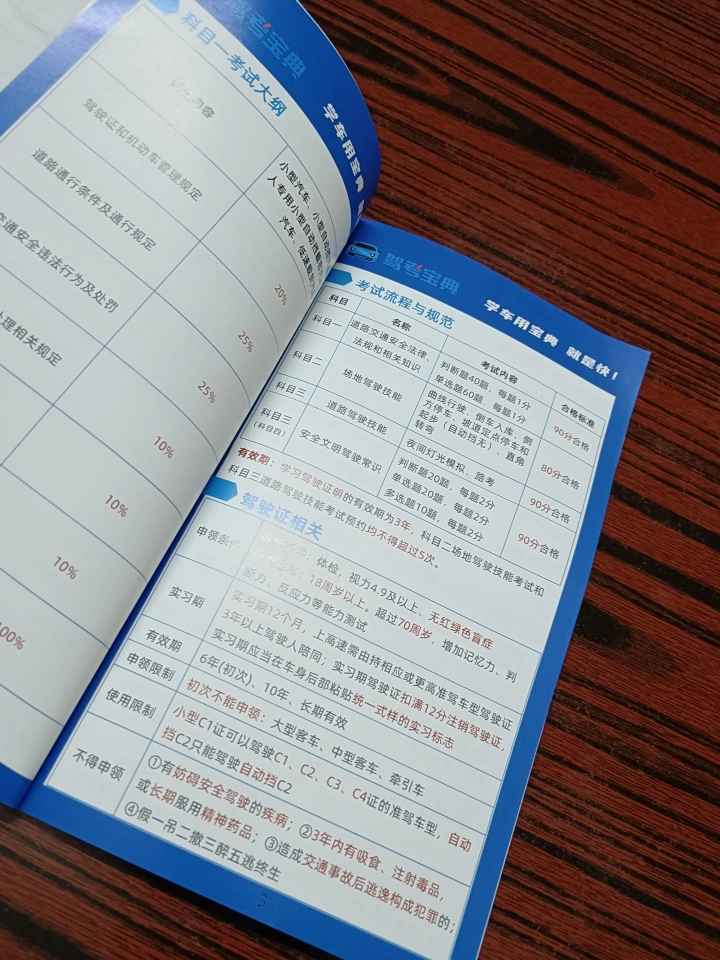 驾考宝典
学车用宝典
科目一考试大纲
内容
小型汽车、小型自动挡
人专用小型自动挡载
汽车、低速载
驾驶证和机动车管理规定
20%
道路通行条件及通行规定
25%
交通安全违法行为及处罚
25%
处理相关规定
10%
10%
10%
100%
驾考宝典
学车用宝典 就是快！
考试流程与规范
科目
名称
考试内容
合格标准
科目一
道路交通安全法律、
法规和相关知识
判断题40题，每题1分
单选题60题，每题1分
90分合格
科目二
场地驾驶技能
曲线行驶、倒车入库、侧
方停车、坡道定点停车和
起步（自动挡无）、直角
转弯
80分合格
科目三
道路驾驶技能
夜间灯光模拟、路考
90分合格
科目三
（科目四）
安全文明驾驶常识
判断题20题，每题2分
单选题20题，每题2分
多选题10题，每题2分
90分合格
有效期：学习驾驶证明的有效期为3年，科目二场地驾驶技能考试和
科目三道路驾驶技能考试预约均不得超过5次。
驾驶证相关
申领条件
：体检，视力4.9及以上、无红绿色盲症
：18周岁以上。超过70周岁，增加记忆力、判
断力、反应力等能力测试
实习期
实习期12个月，上高速需由持相应或更高准驾车型驾驶证
3年以上驾驶人陪同；实习期驾驶证扣满12分注销驾驶证，
实习期应当在车身后部粘贴统一式样的实习标志
有效期
6年(初次)、10年、长期有效
申领限制
初次不能申领：大型客车、中型客车、牵引车
使用限制
小型C1证可以驾驶C1、C2、C3、C4证的准驾车型，自动
挡C2只能驾驶自动挡C2
不得申领
①有妨碍安全驾驶的疾病；②3年内有吸食、注射毒品，
或长期服用精神药品；③造成交通事故后逃逸构成犯罪的；
④假一吊二撤三醉五逃终生
3